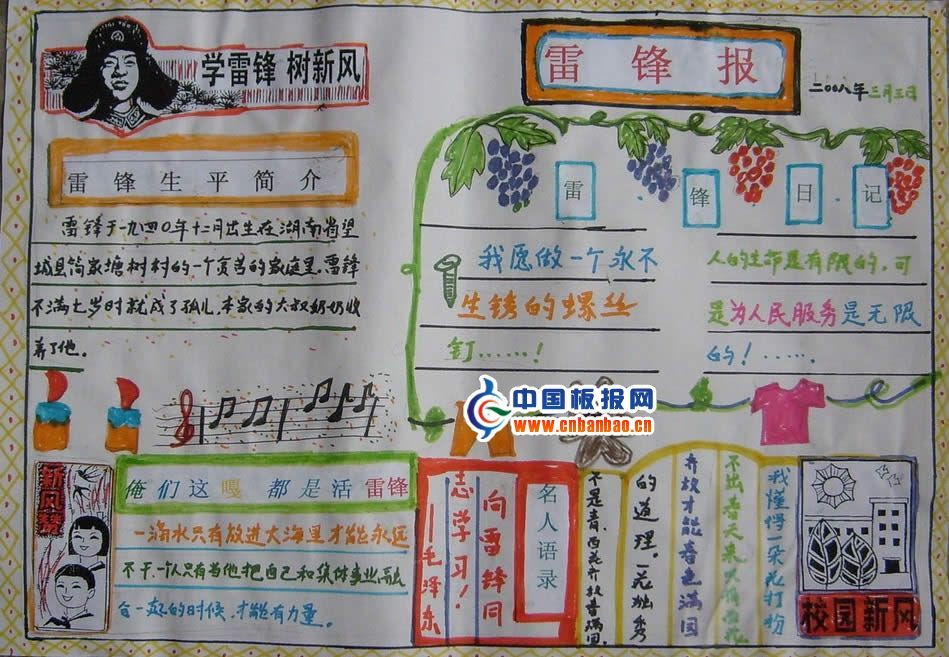 学雷锋 树新风
雷锋报
二00八年三月三日
雷锋生平简介
雷锋于一九四0年十二月出生在湖南省望
城县简家塘树村的一个贫苦的家庭里。雷锋
不满七岁时就成了孤儿,本家的六叔奶奶收
养了他。
雷锋日记
我愿做一个永不
生锈的螺丝
钉……!
人的生命是有限的,可
是为人民服务是无限
的!……
中国板报网
www.cnbanbao.cn
新风赞
俺们这嘎都是活雷锋
一滴水只有放进大海里才能永远
不干一个人只有当他把自己和集体事业融
合一起的时候,才能有力量。
名人语录
向雷锋同
志学习!
——毛泽东
我懂得一朵花打扮
不出春天来只有
齐放才能春色满园
的道理。一花独秀
不是春,百花齐放春满园。
校园新风